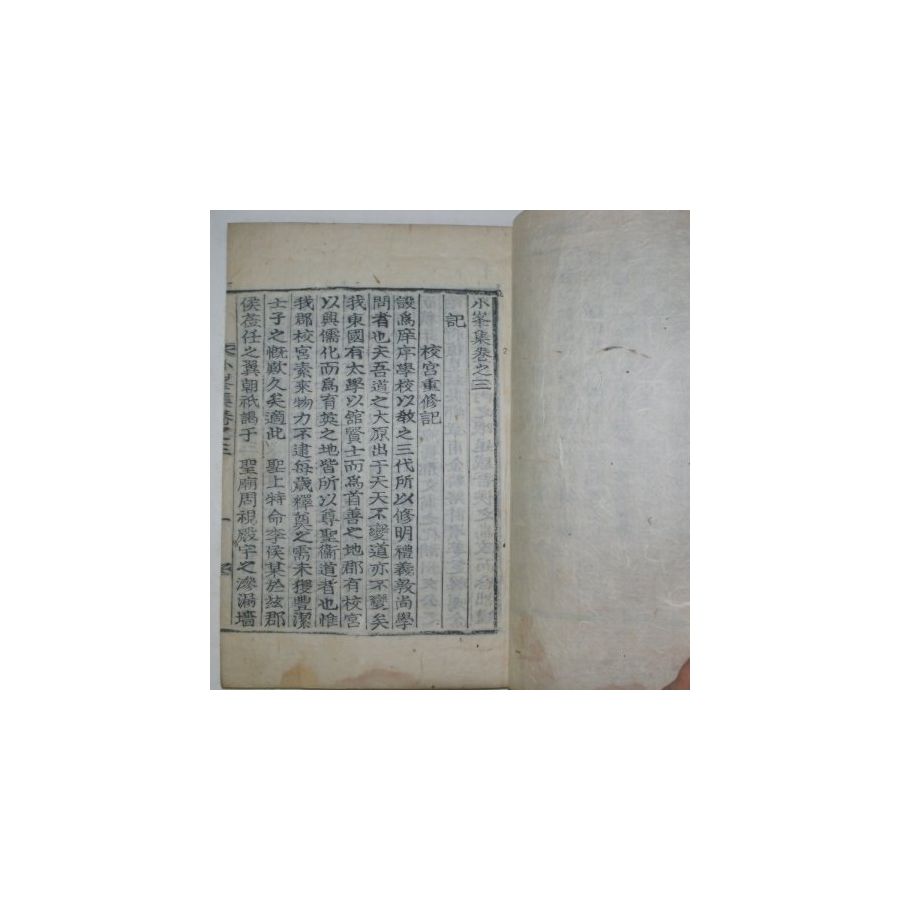 小峯集卷之三
記
校宮重修記
設爲庠序學校以敎之三代所以修明禮義敦尚學
問者也夫吾道之大原出于天天不變道亦不變矣
我東國有太學以舘賢士而爲首善之地郡有校宮
以興儒化而爲育英之地皆所以尊聖衞道者也惟
我郡校宮索來物力不逮每歲釋奠之需未獲豐潔
士子之慨歎久矣適此 聖上特命李侯某於玆郡
侯莅任之翼朝祇謁于 聖廟周視殿宇之滲漏墻
小峯集卷之三